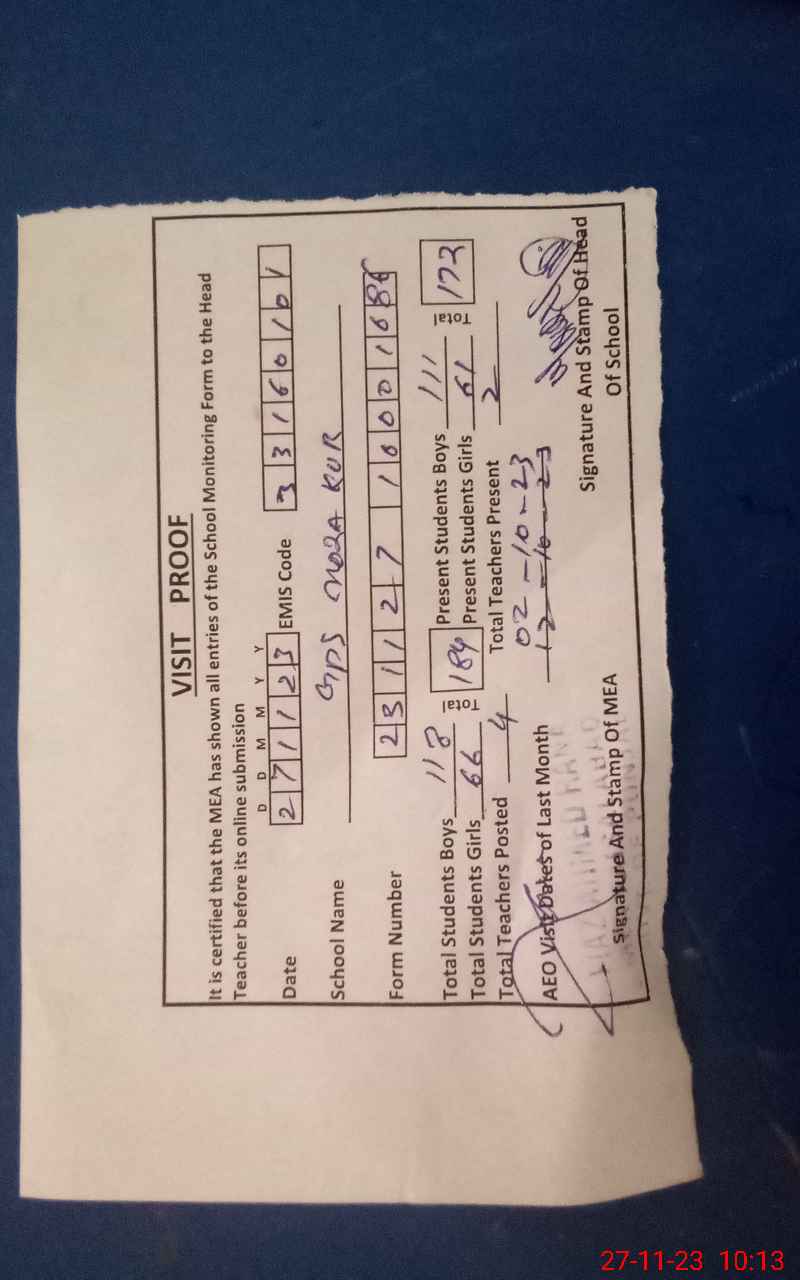 VISIT PROOF
It is certified that the MEA has shown all entries of the School Monitoring Form to the Head
Teacher before its online submission
D D M M Y Y
Date 2 7 1 1 2 3 EMIS Code 3 3 1 6 0 1 0 1
School Name GPS MORA KUR
Form Number 2 3 1 1 2 7 1 0 0 0 1 0 8
Total Students Boys 118 Total 184 Present Students Boys 111 Total 172
Total Students Girls 66 Present Students Girls 61
Total Teachers Posted 4 Total Teachers Present 2
02-10-23
AEO Visit Dates of Last Month 12-10-23
Signature And Stamp Of MEA Signature And Stamp Of Head
Of School
27-11-23 10:13